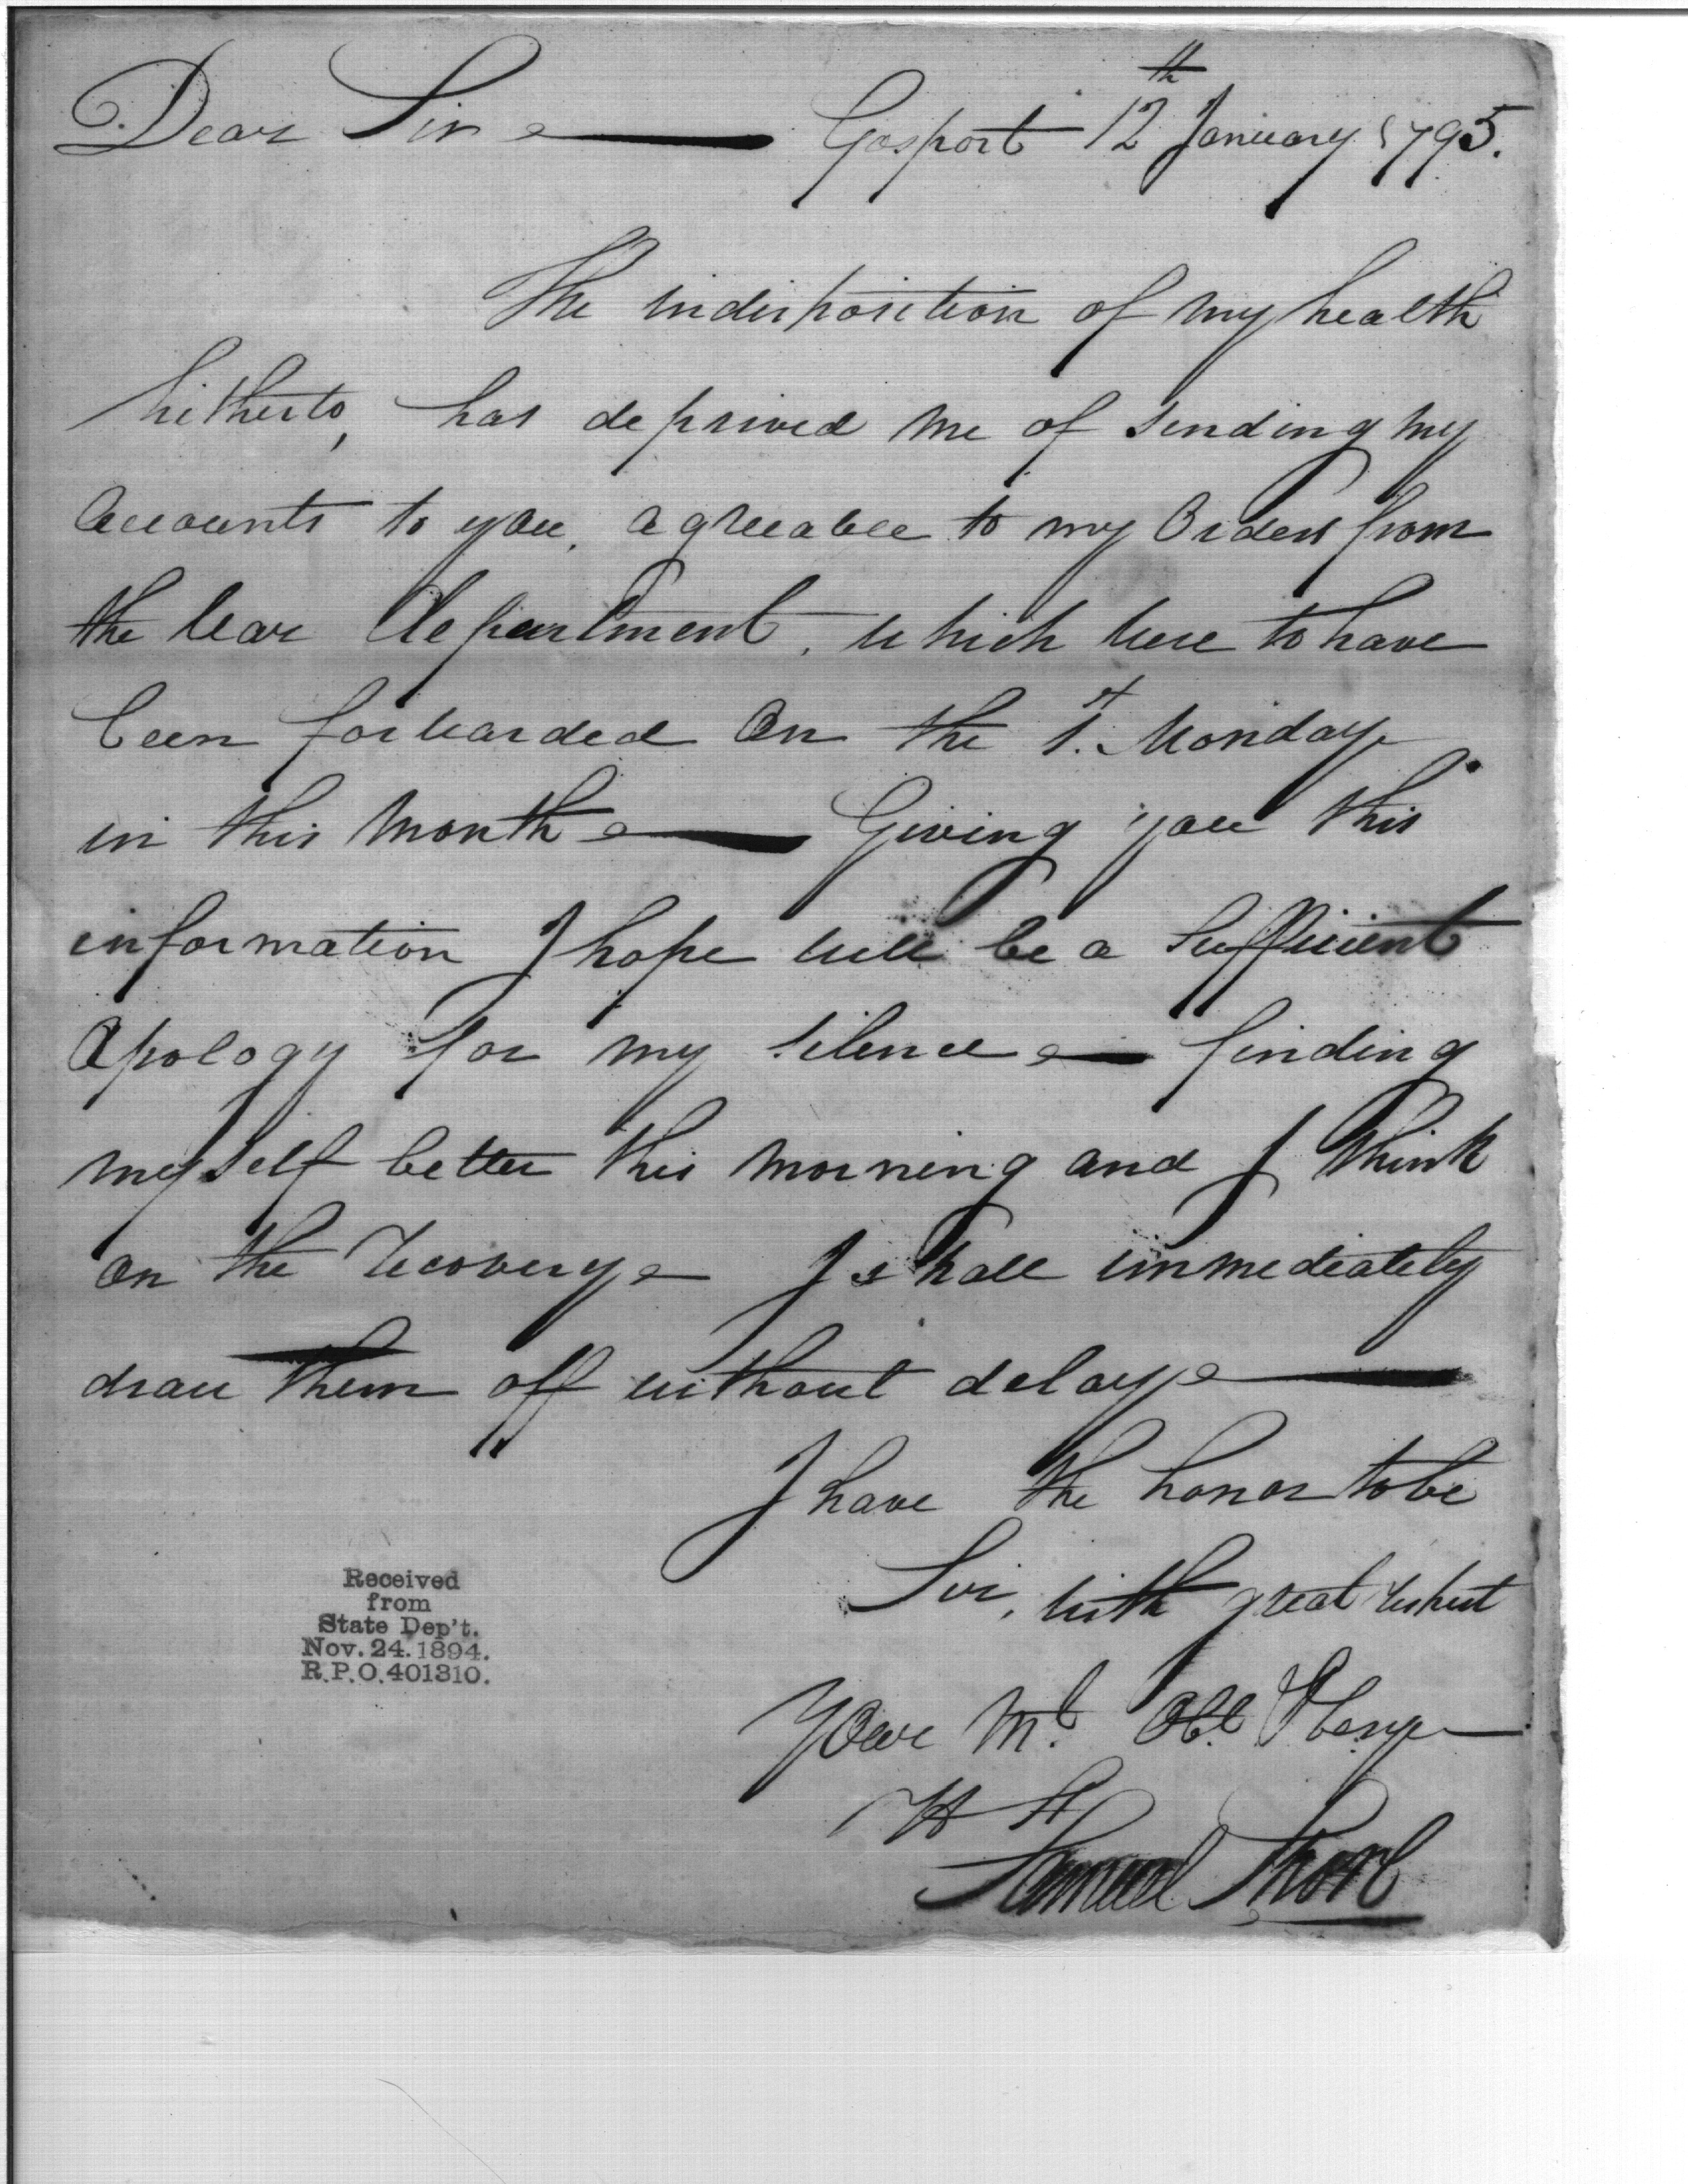 Dear Sir — Gosport 12th January 1795.
The indisposition of my health
hitherto, has deprived me of sending my
Accounts to you, agreeable to my Orders from
the War department, which were to have
been forwarded On the 1st Monday
in this Month — Giving you this
information I hope will be a Sufficient
Apology for my silence — finding
myself better this morning and I think
on the recovery — I shall immediately
draw them off without delay —
I have the honor to be
Sir, with great respect
Your Mt. Obt.
Samuel Thorl
Received
from
State Dep't.
Nov. 24. 1894.
R.P.O. 401310.